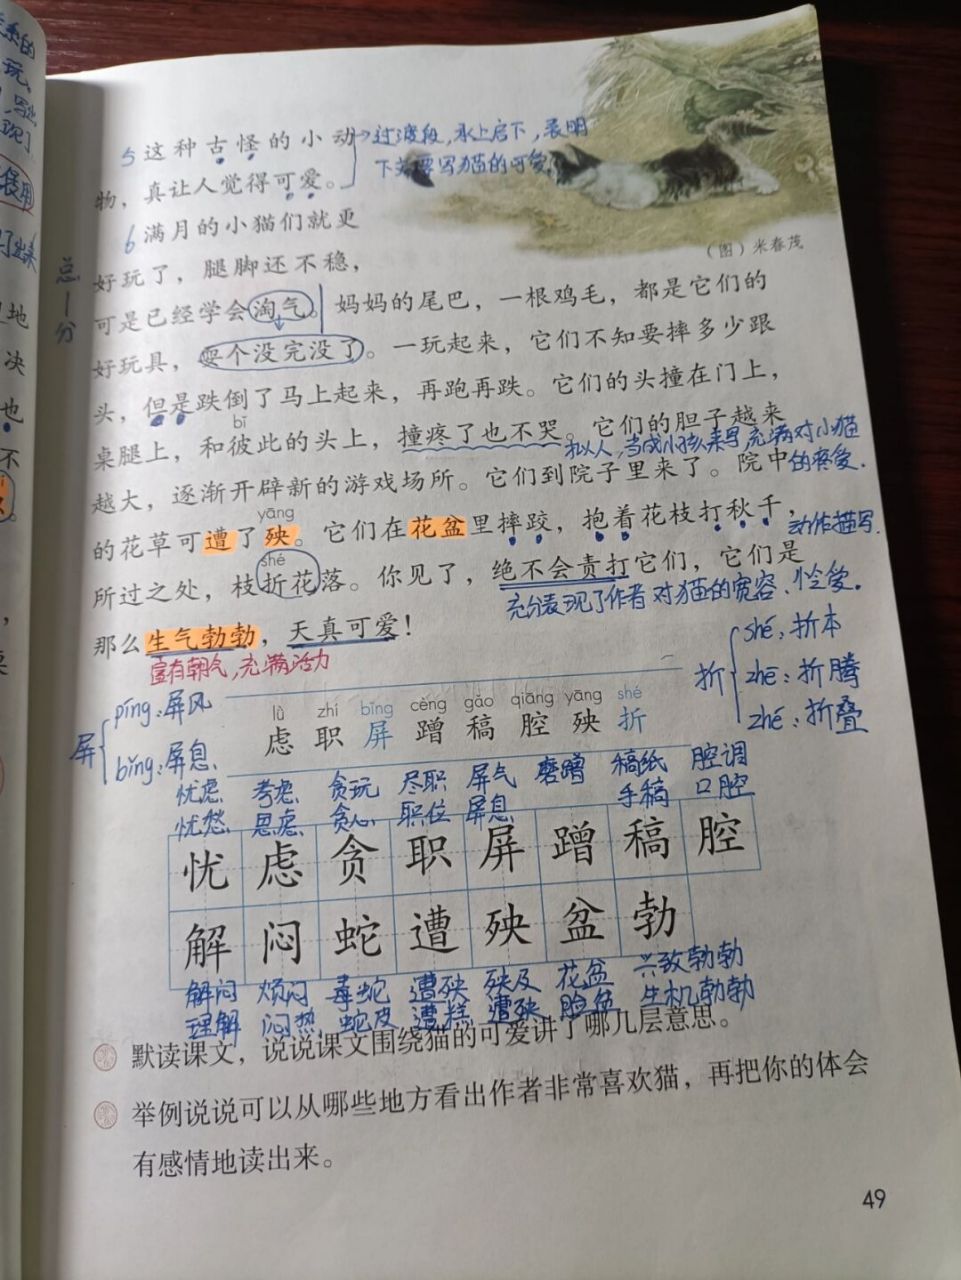 5 这种古怪的小动
过渡段,承上启下,表明
物，真让人觉得可爱。
下文要写猫的可爱
6 满月的小猫们就更
（图）米春茂
好玩了，腿脚还不稳，
总—分
可是已经学会淘气。妈妈的尾巴，一根鸡毛，都是它们的
好玩具，耍个没完没了。一玩起来，它们不知要摔多少跟
头，但是跌倒了马上起来，再跑再跌。它们的头撞在门上，
bǐ
桌腿上，和彼此的头上，撞疼了也不哭。它们的胆子越来
拟人,当成小孩来写,充满对小猫
的疼爱.
越大，逐渐开辟新的游戏场所。它们到院子里来了。院中
yāng
的花草可遭了殃。它们在花盆里摔跤，抱着花枝打秋千，
动作描写.
shé
所过之处，枝折花落。你见了，绝不会责打它们，它们是
充分表现了作者对猫的宽容、怜爱.
那么生气勃勃，天真可爱！
富有朝气,充满活力
折
shé:折本
zhē:折腾
zhé:折叠
屏
píng:屏风
bǐng:屏息
lǜ zhí bǐng cèng gǎo qiāng yāng shé
虑 职 屏 蹭 稿 腔 殃 折
忧虑 考虑 贪玩 尽职 屏气 磨蹭 稿纸 腔调
忧愁 思虑 贪心 职位 屏息 手稿 口腔
忧 虑 贪 职 屏 蹭 稿 腔
解 闷 蛇 遭 殃 盆 勃
解闷 烦闷 毒蛇 遭殃 殃及 花盆 兴致勃勃
理解 闷热 蛇皮 遭糕 遭殃 脸盆 生机勃勃
默读课文，说说课文围绕猫的可爱讲了哪几层意思。
举例说说可以从哪些地方看出作者非常喜欢猫，再把你的体会
有感情地读出来。
49